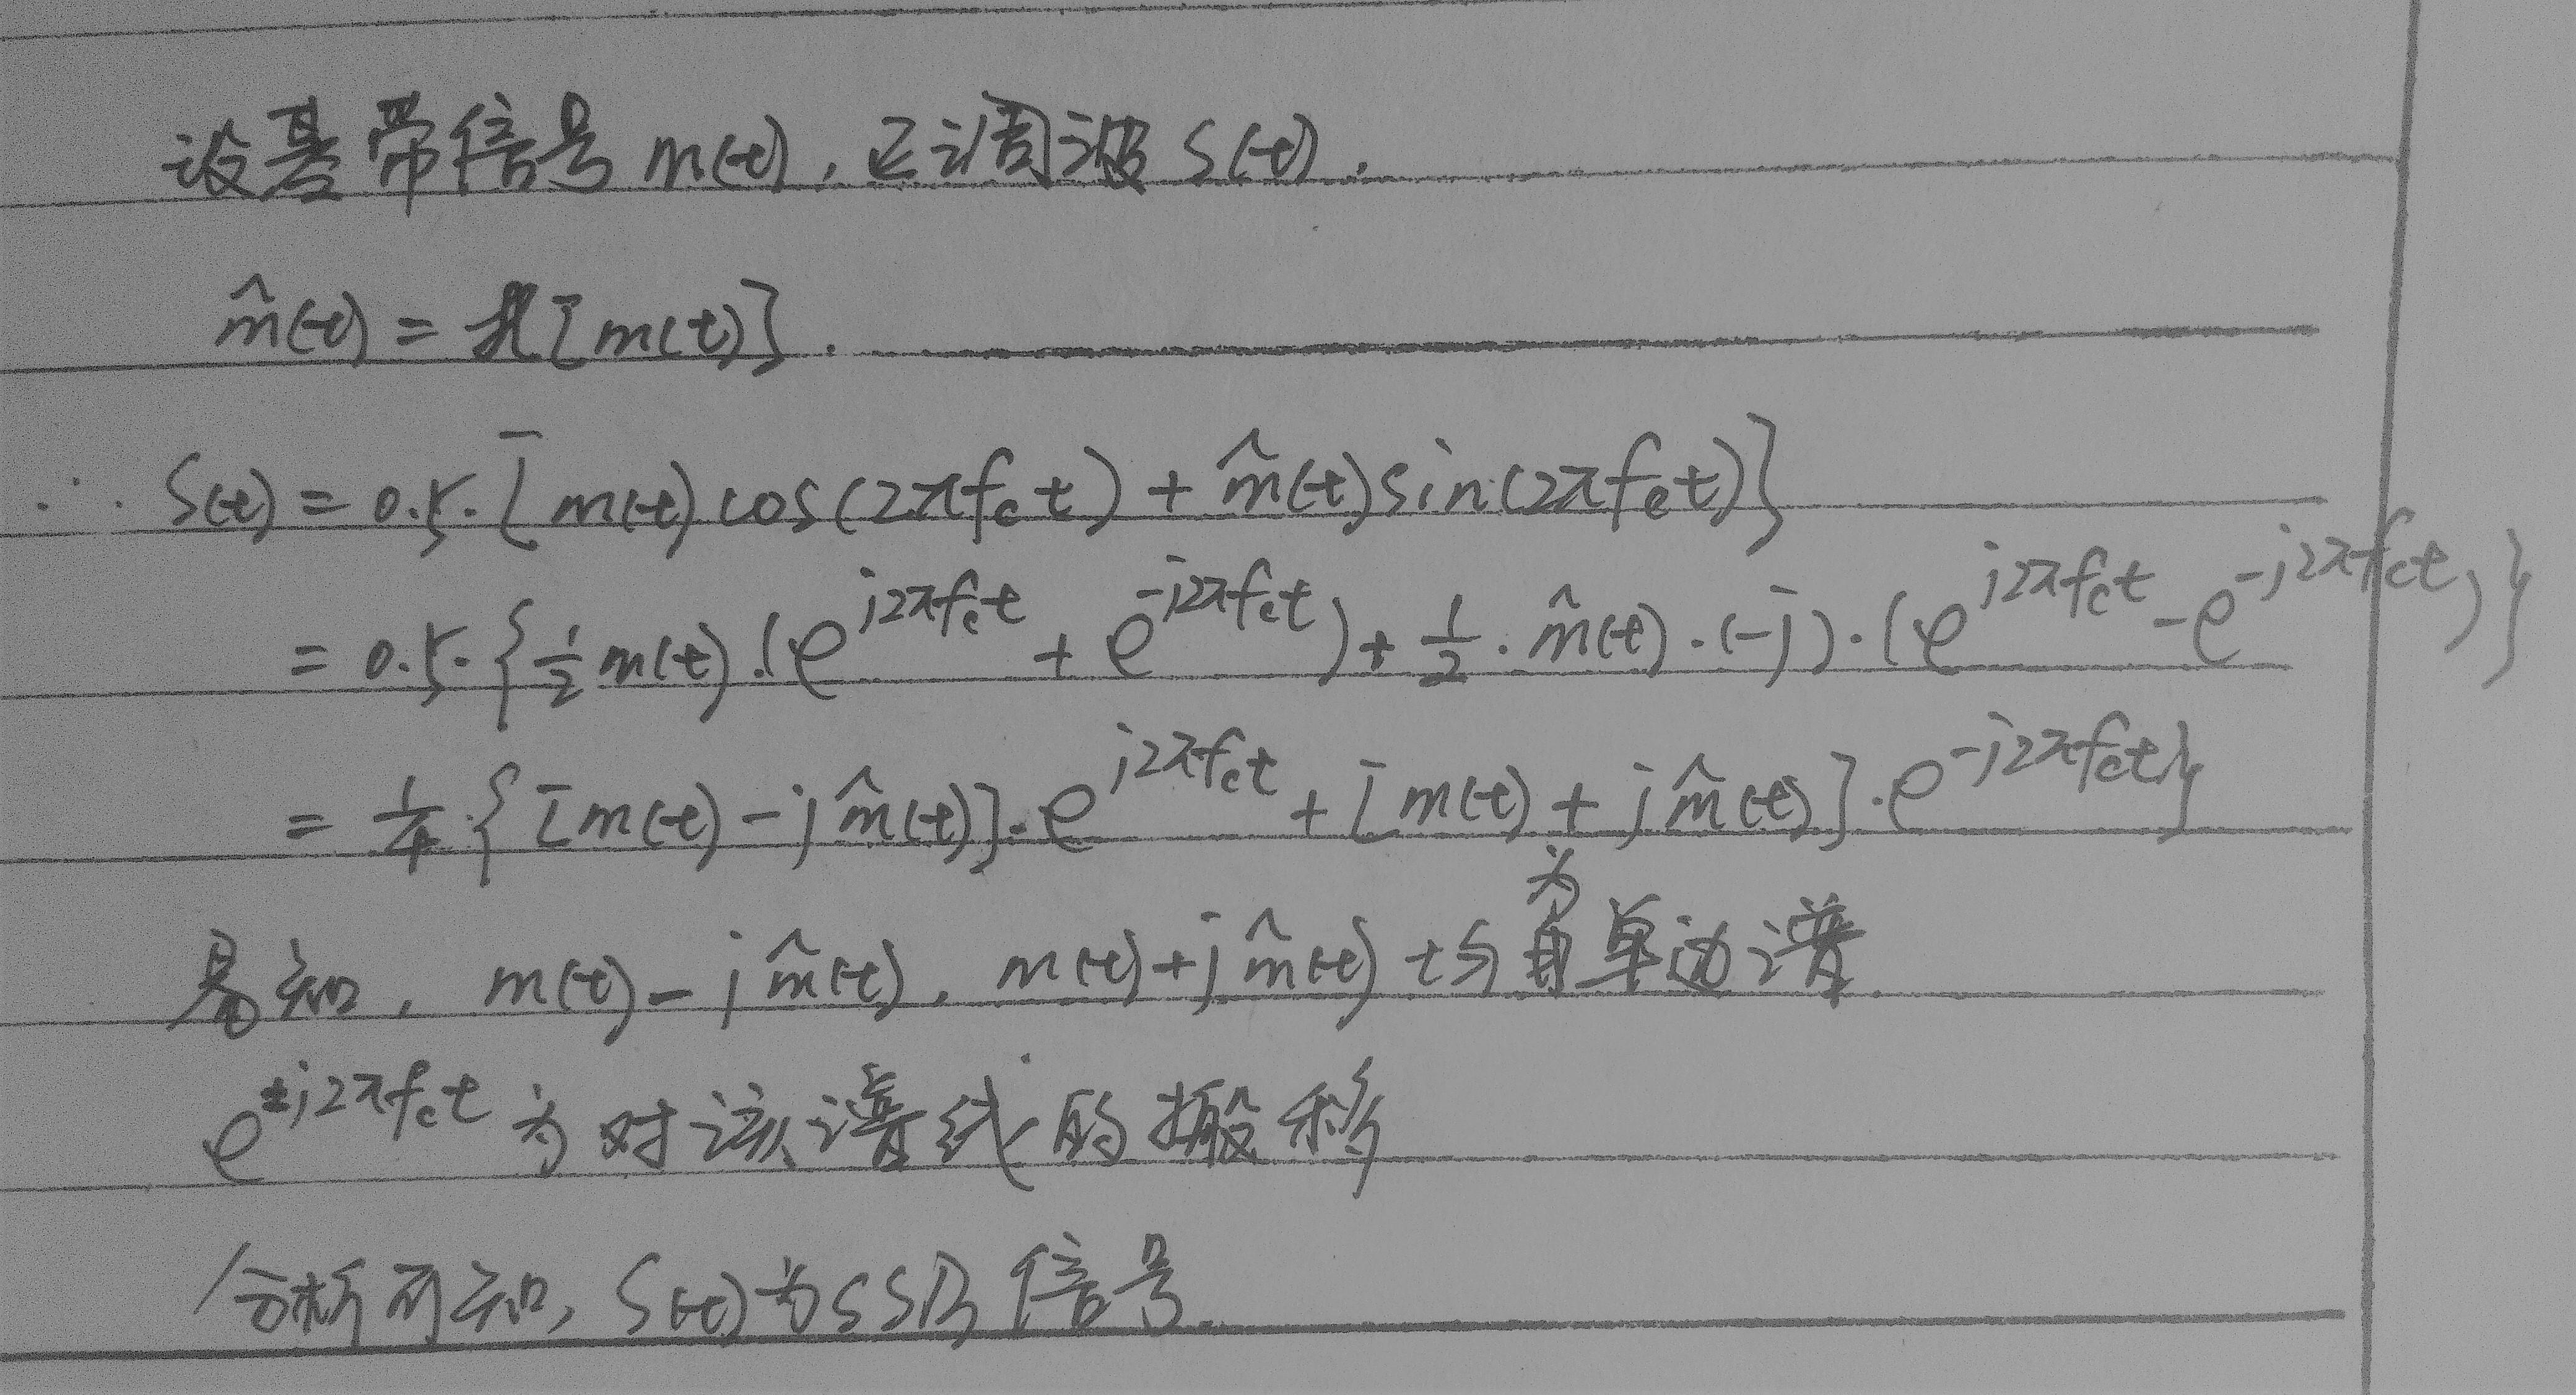 设基带信号 m(t), 已调波 s(t).
m̂(t) = ℋ[m(t)].
∴ s(t) = 0.5·[m(t)cos(2πf_c t) + m̂(t)sin(2πf_c t)]
= 0.5·{½m(t)·(e^{j2πf_c t} + e^{-j2πf_c t}) + ½·m̂(t)·(-j)·(e^{j2πf_c t} - e^{-j2πf_c t})}
= ¼·{[m(t) - jm̂(t)]·e^{j2πf_c t} + [m(t) + jm̂(t)]·e^{-j2πf_c t}}
易知, m(t) - jm̂(t), m(t) + jm̂(t) 均为单边谱
e^{±j2πf_c t} 为对该谱线的搬移
分析可知, s(t)为SSB信号.